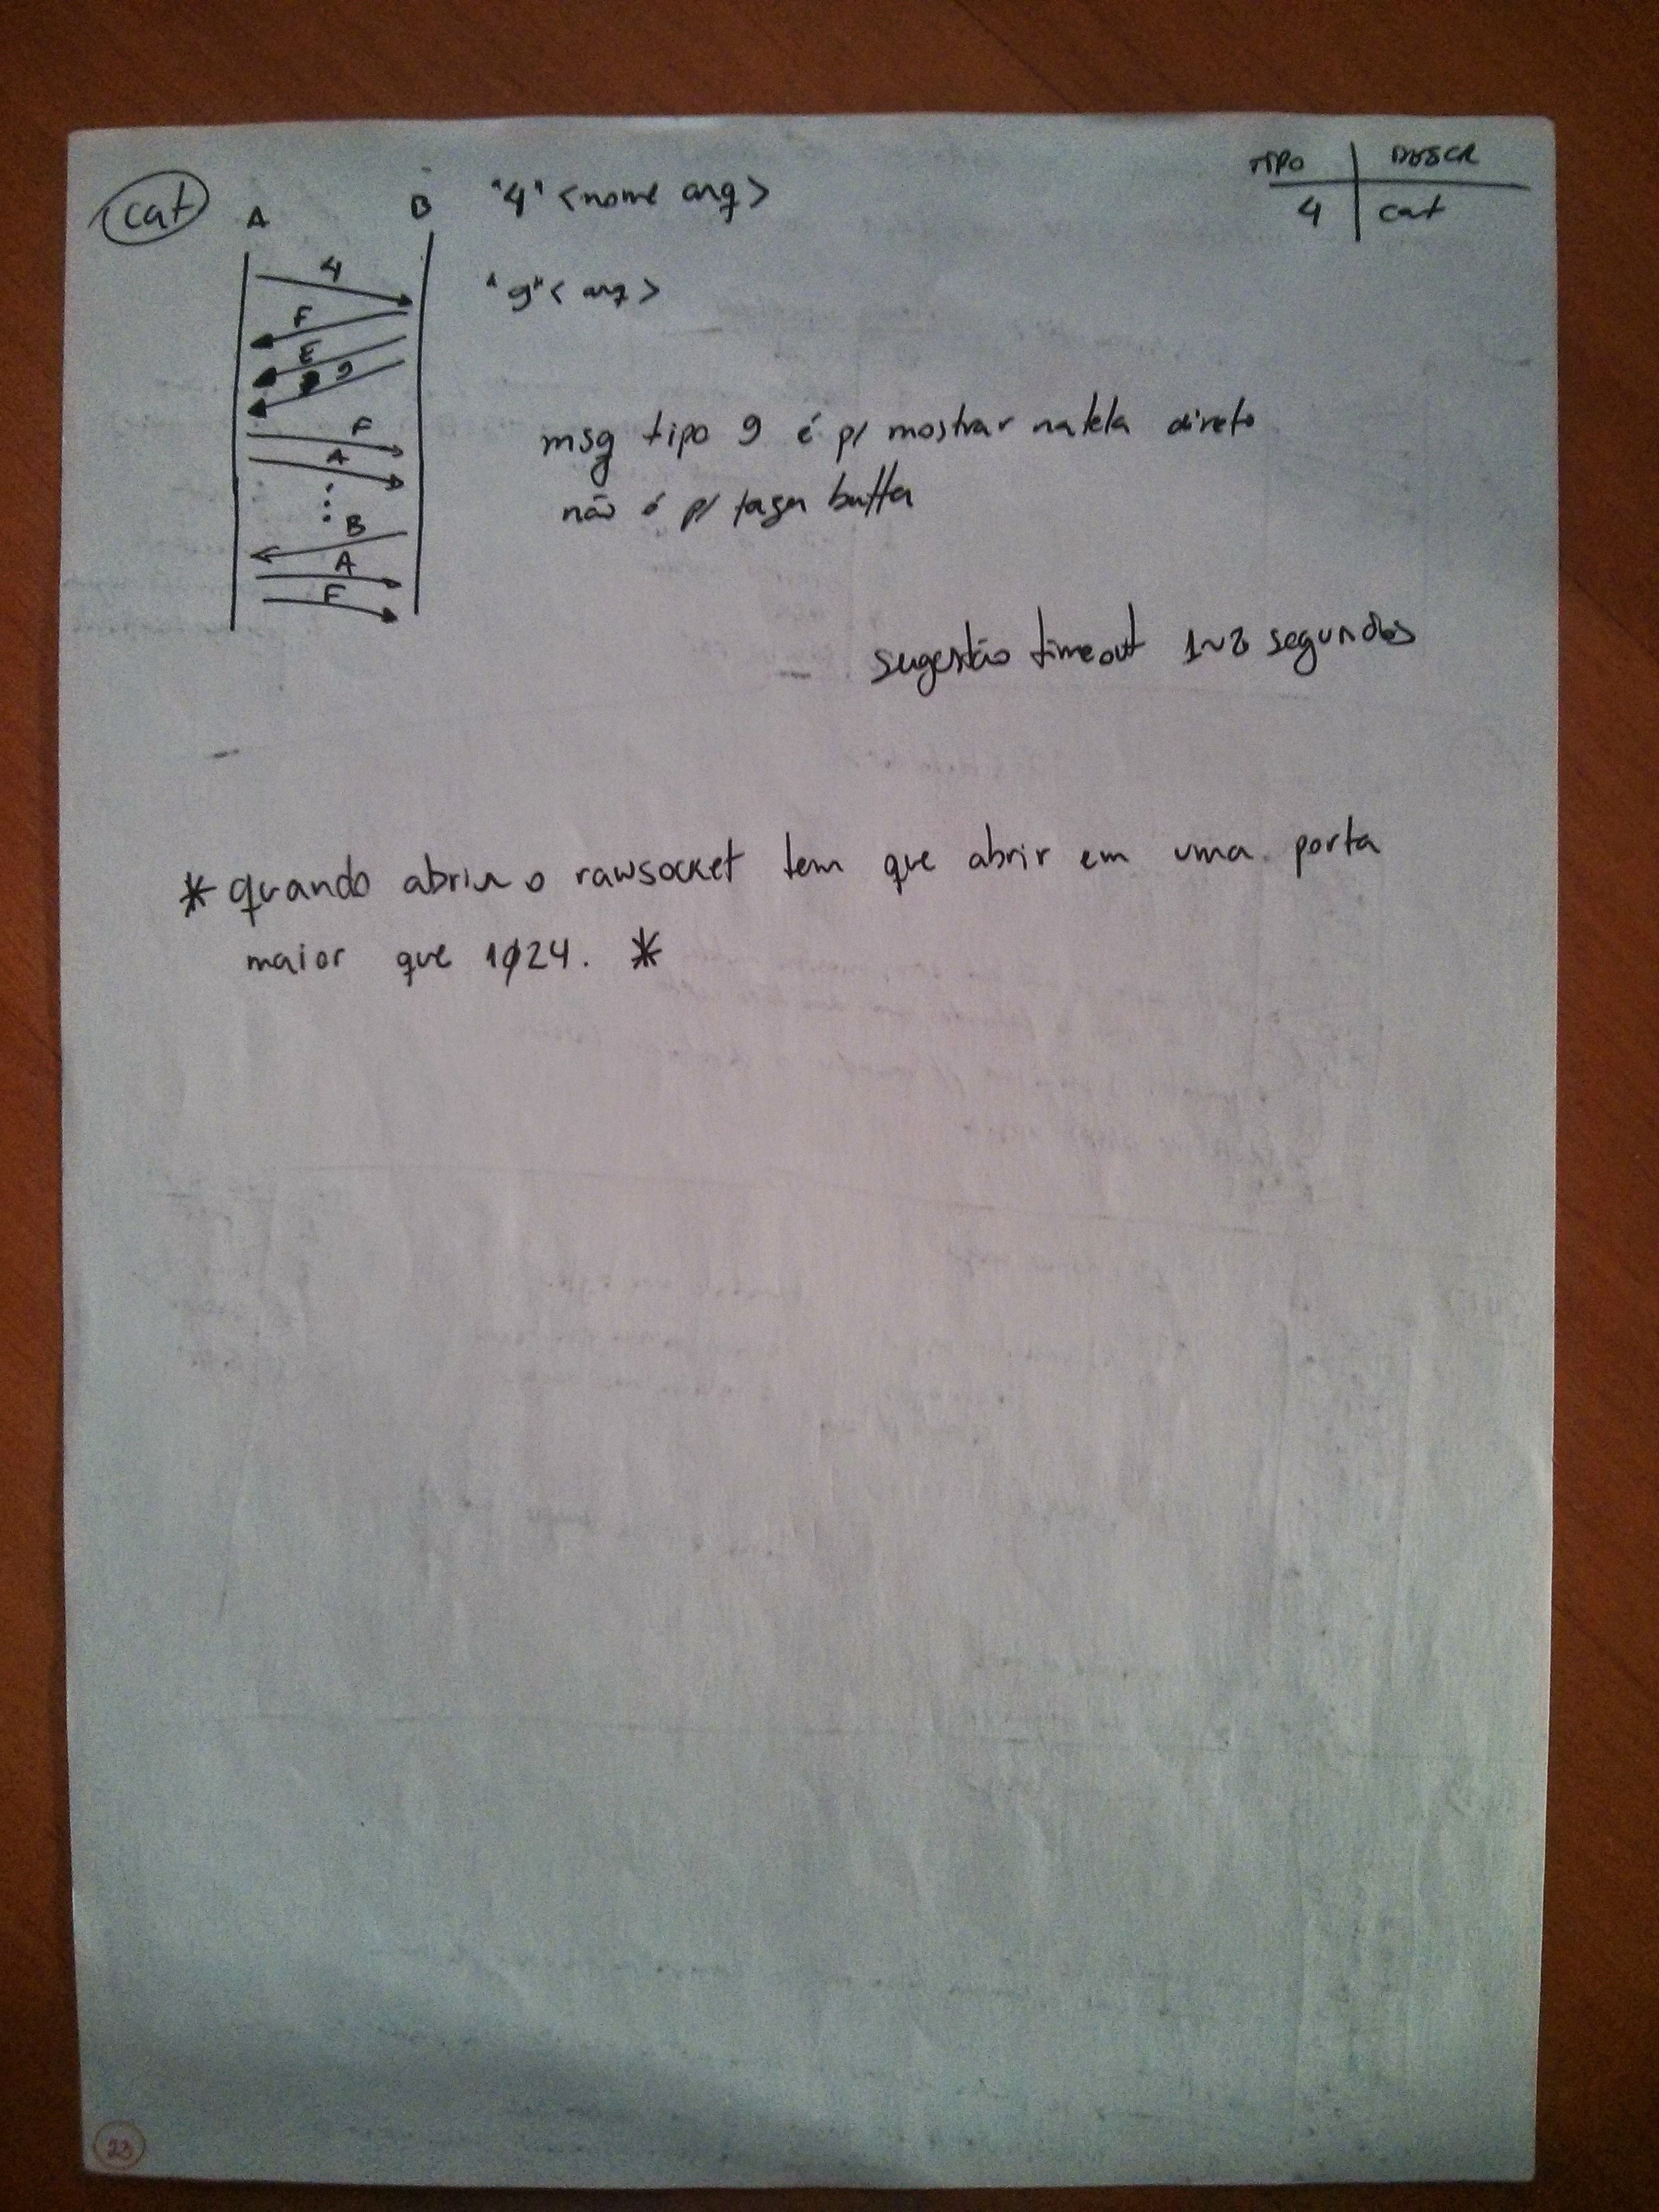 cat
A
B
"4" <nome arq>
TIPO | DESCR
4 | cat
"9" < arq >
4
F
E
9
F
A
B
A
F
msg tipo 9 é p/ mostrar na tela direto
não é p/ fazer buffer
sugestão timeout segundos
* quando abrir o rawsocket tem que abrir em uma porta
maior que 1024. *
23